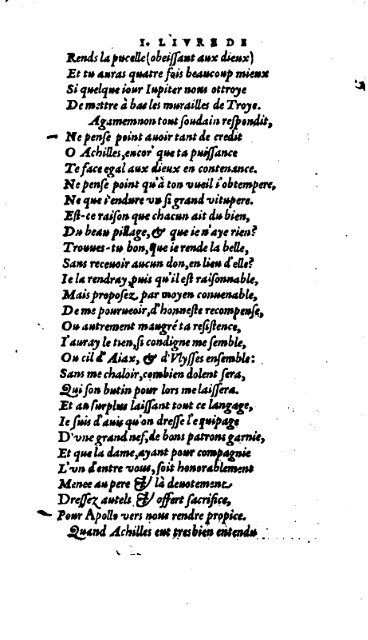 I. LIVRE DE
Rends la pucelle (obeissant aux dieux)
Et tu auras quatre fois beaucoup mieux
Si quelque iour Iupiter nous ottroye
De mettre à bas les murailles de Troye.
Agamemnon tout soudain respondit,
Ne pense point auoir tant de credit
O Achilles, encor' que ta puissance
Te face egal aux dieux en contenance.
Ne pense point qu'à ton vueil i'obtempere,
Ne que i'endure vn si grand vitupere.
Est-ce raison que chacun ait du bien,
Du beau pillage, & que ie n'aye rien?
Trouues-tu bon, que ie rende la belle,
Sans receuoir aucun don, en lieu d'elle?
Ie la rendray, puis qu'il est raisonnable,
Mais proposez, par moyen conuenable,
De me pourueoir, d'honneste recompense,
Ou autrement maugré ta resistence,
I'auray le tien, si condigne me semble,
Ou cil d'Aiax, & d'Vlysses ensemble:
Sans me chaloir, combien dolent sera,
Qui son butin pour lors me laissera.
Et au surplus laissant tout ce langage,
Ie suis d'auis qu'on dresse l'equipage
D'vne grand nef, de bons patrons garnie,
Et que la dame, ayant pour compagnie
L'vn d'entre vous, soit honorablement
Menee au pere & là deuotement
Dressez autels & offert sacrifice,
Pour Apollo vers nous rendre propice.
Quand Achilles eut tresbien entendu